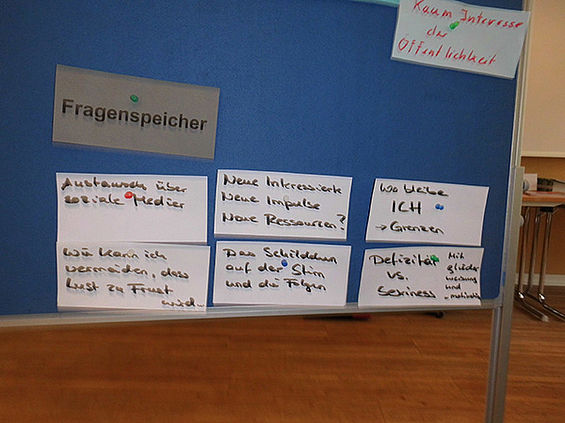 Kaum Interesse
der
Öffentlichkeit
Fragenspeicher
Austausch über
soziale Medien
Neue Interessierte
Neue Impulse
Neue Ressourcen?
Wo bleibe
ICH
→ Grenzen
Wie kann ich
vermeiden, dass
Lust zu Frust
wird
Das Schildchen
auf der Stirn
und die Folgen
Defizität
vs.
Sexiness
Mit
glieder
und